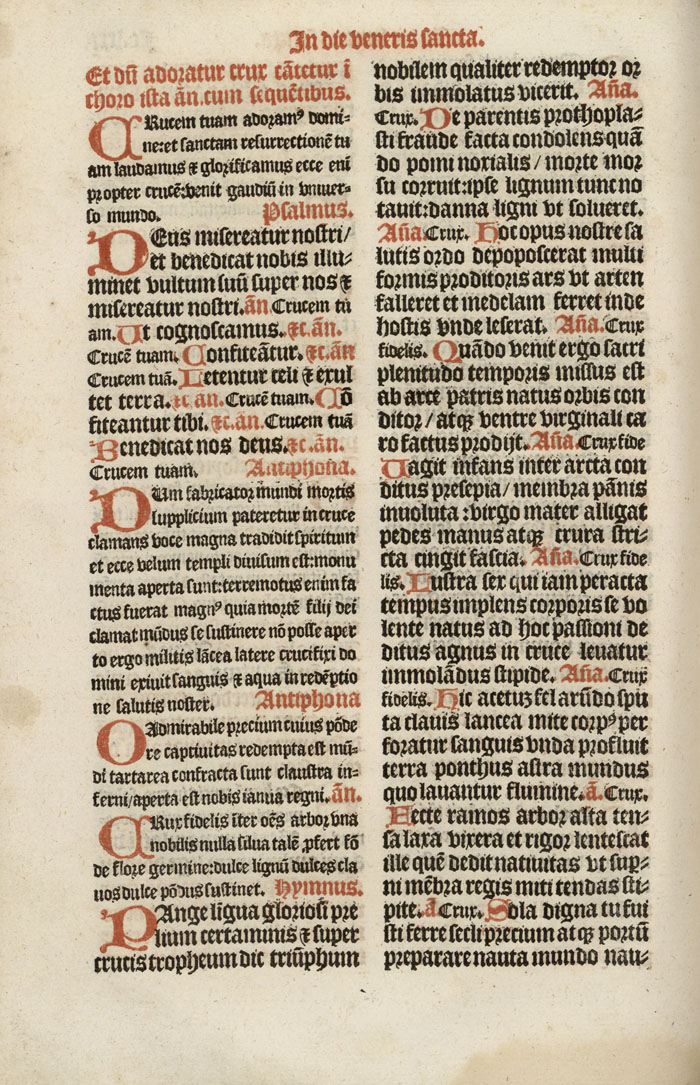 In die veneris sancta.
Et dñi adoratur crux cãtetur ĩ
choro ista añ. cum sequẽtibus.
CRucem tuam adoramꝰ domi-
ne: et sanctam resurrectionẽ tu
am laudamus ⁊ glorificamus ecce eni
propter crucẽ: venit gaudiũ in vniuer-
so mundo. Psalmus.
DEus misereatur nostri/
et benedicat nobis illu-
minet vultum suũ super nos ⁊
misereatur nostri. añ Crucem tu
am. Ut cognoscamus. ⁊c. añ.
Crucẽ tuam. Confiteãtur. ⁊c. añ
Crucem tuã. Letentur celi ⁊ exul
tet terra. ⁊c. añ. Crucẽ tuam. Cõ
fiteantur tibi. ⁊c. añ. Crucem tuã
Benedicat nos deus. ⁊c. añ.
Crucem tuam. Antiphona.
DUm fabricator mundi mortis
supplicium pateretur in cruce
clamans voce magna tradidit spiritum
et ecce velum templi diuisum est: monu
menta aperta sunt: terremotus enim fa
ctus fuerat magnꝰ quia mortẽ filij dei
clamat mũdus se sustinere nõ posse aper
to ergo militis lãcea latere crucifixi do
mini exiuit sanguis ⁊ aqua in redẽptio
ne salutis noster. Antiphona
O Admirabile precium cuius põde
re captiuitas redempta est mũ-
di tartarea confracta sunt claustra in-
ferni/aperta est nobis ianua regni. añ.
CRux fidelis ĩter oẽs arbor vna
nobilis nulla silua talẽ ꝓfert frõ
de flore germine: dulce lignũ dulces cla
uos dulce põdus sustinet. Hymnus.
PAnge lĩgua gloriosi pre
lium certaminis ⁊ super
crucis tropheum dic triũphum
nobilem qualiter redemptor or
bis immolatus vicerit. Aña.
Crux. De parentis prothopla-
sti fraude facta condolens quã
do pomi noxialis/ morte mor
su corruit: ipse lignum tunc no
tauit: danna ligni vt solueret.
Aña. Crux. Hoc opus nostre sa
lutis ordo depoposcerat multi
formis proditoris ars vt artem
falleret et medelam ferret inde
hostis vnde leserat. Aña. Crux
fidelis. Quãdo venit ergo sacri
plenitudo temporis missus est
ab arce patris natus orbis con
ditor/ atqꝫ ventre virginali ca
ro factus prodijt. Aña. Crux fide
Uagit infans inter arcta con
ditus presepia/ membra pãnis
inuoluta: virgo mater alligat
pedes manus atqꝫ crura stri-
cta cingit fascia. Aña. Crux fide-
lis. Lustra sex qui iam peracta
tempus implens corporis se vo
lente natus ad hoc passioni de
ditus agnus in cruce leuatur
immolãdus stipide. Aña. Crux
fidelis. Hic acetuꝫ fel arũdo spu
ta clauis lancea mite corpꝰ per
foratur sanguis vnda profluit
terra ponthus astra mundus
quo lauantur flumine. ã. Crux.
Flecte ramos arbor alta ten-
sa laxa vixera et rigor lentescat
ille quẽ dedit natiuitas vt sup-
ni mẽbra regis miti tendas sti-
pite. ã Crux. Sola digna tu fui
sti ferre secli precium atqꝫ portũ
preparare nauta mundo nau-